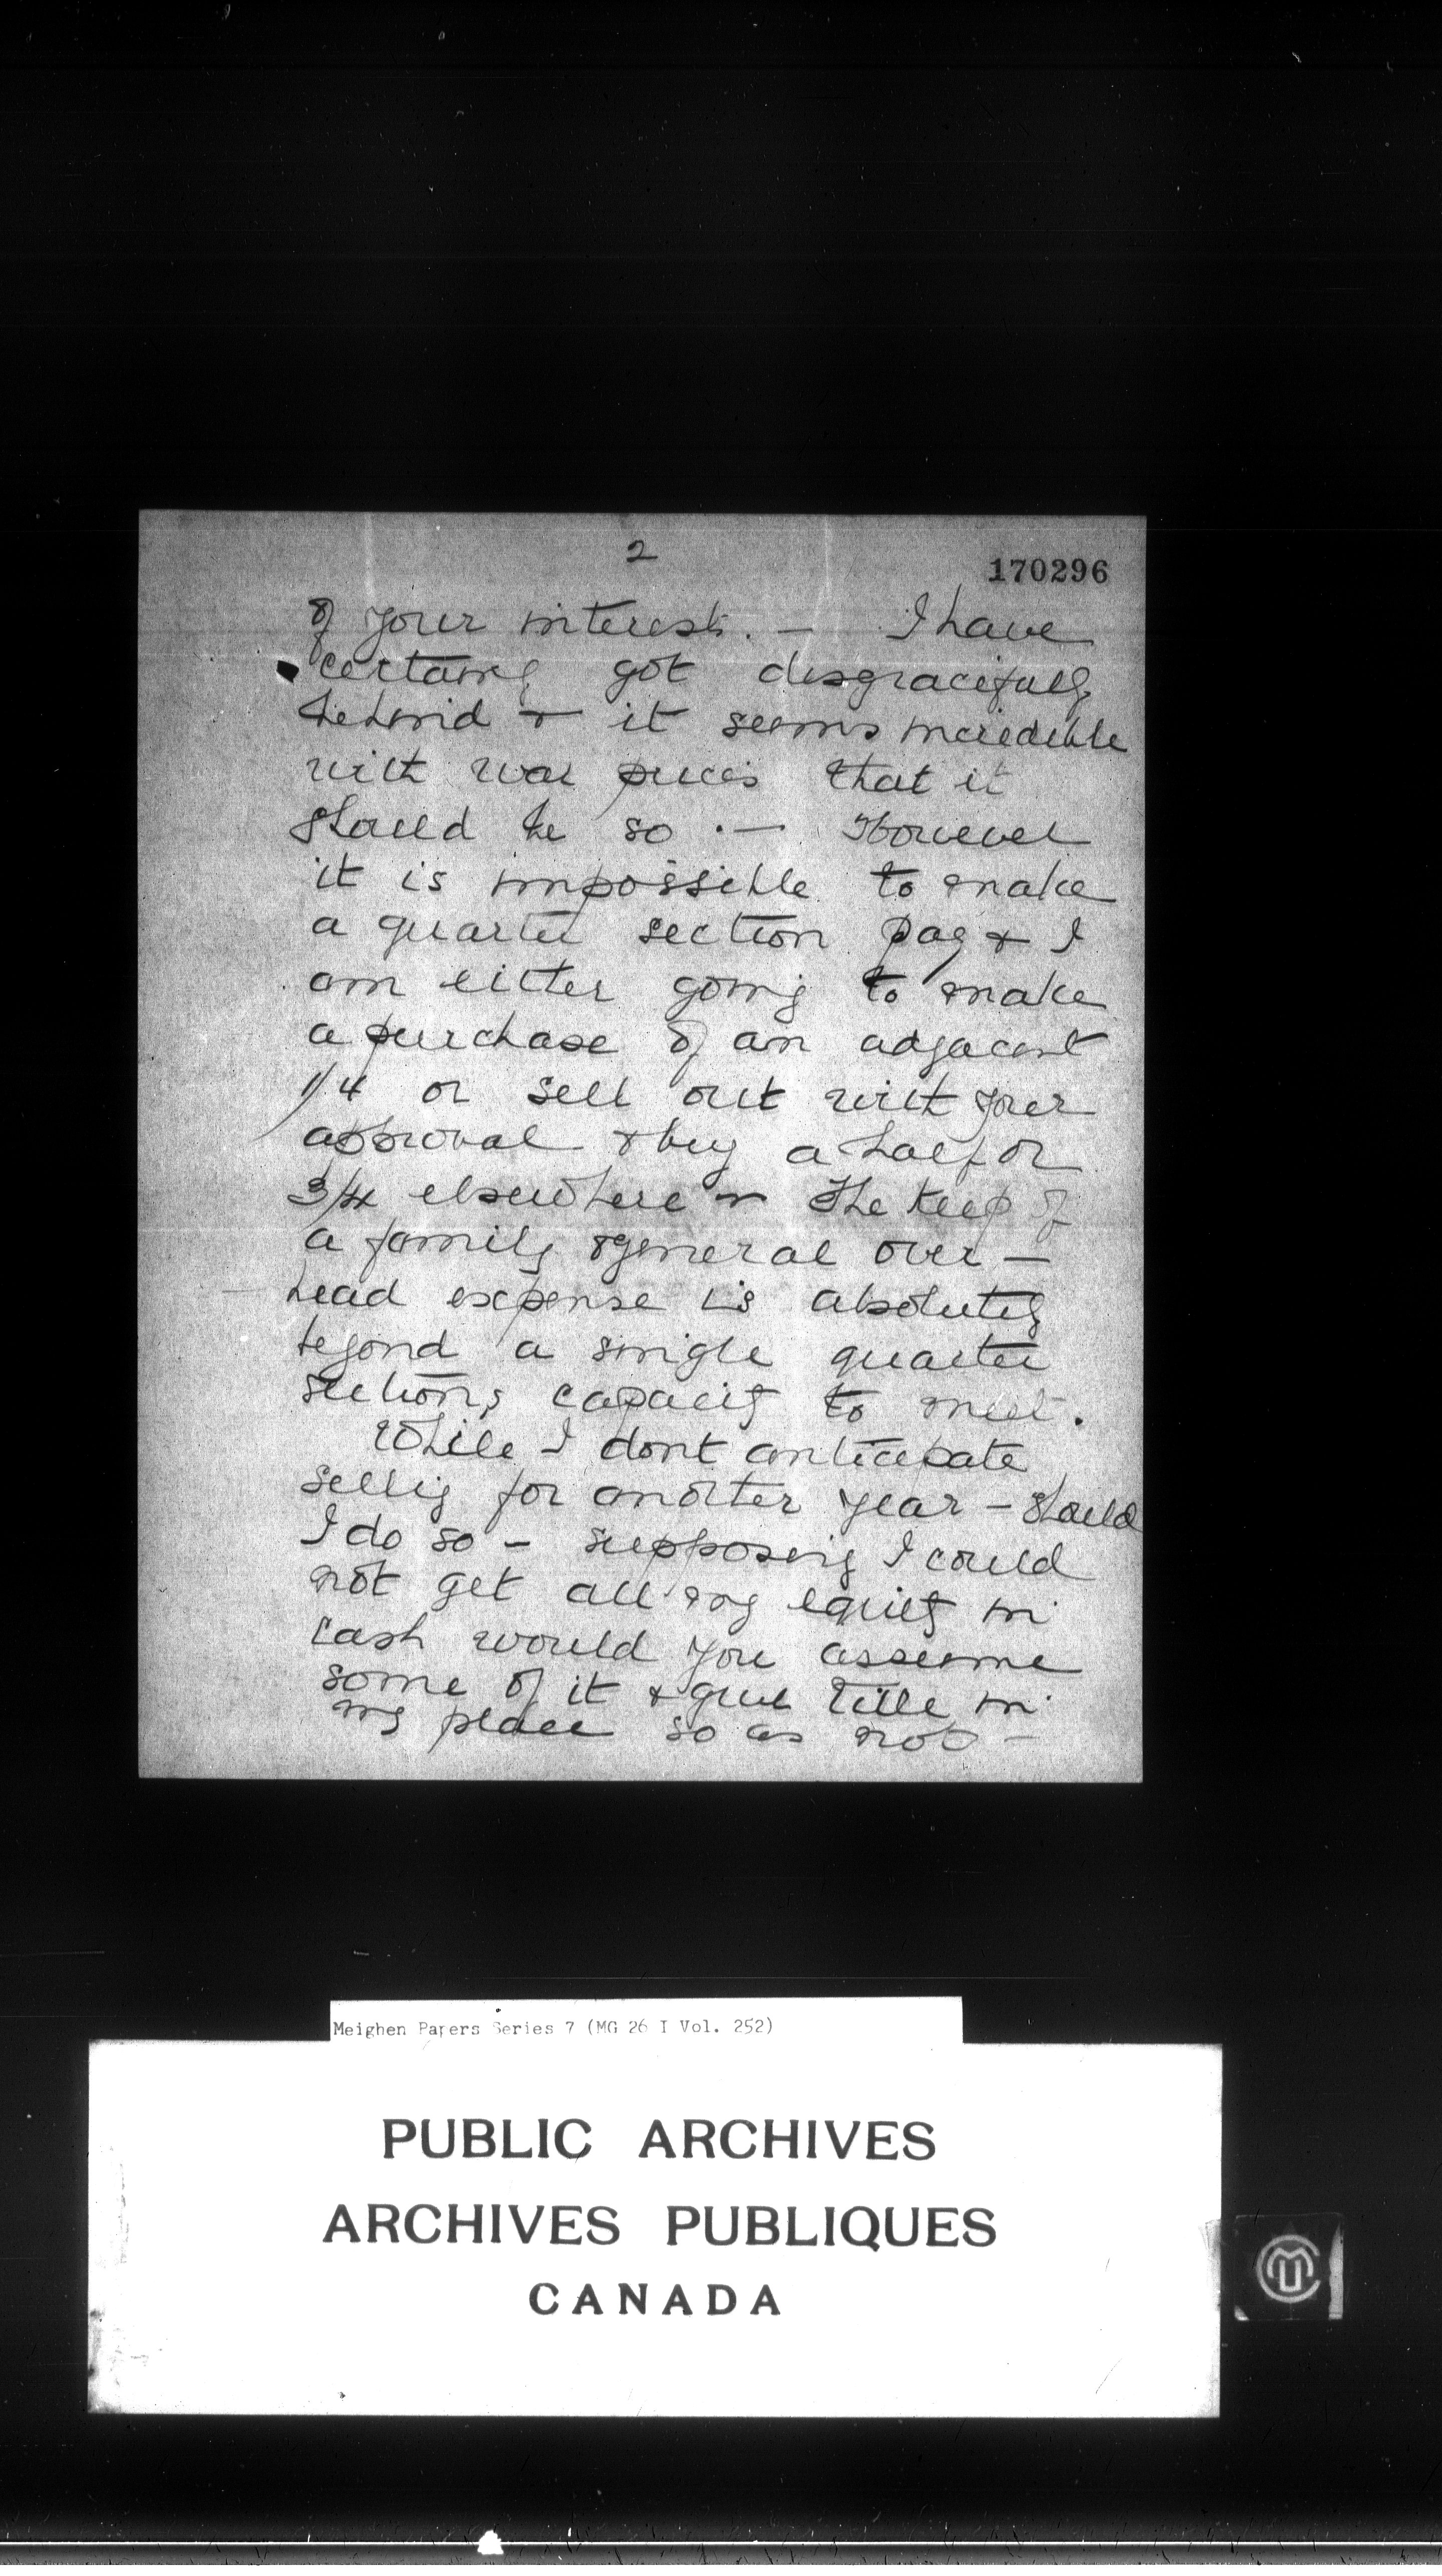 2
170296
of your interests. — I have
certainly got disgracefully
behind & it seems incredible
with war prices that it
should be so. — However
it is impossible to make
a quarter section pay & I
am either going to make
a purchase of an adjacent
1/4 or sell out with your
approval & buy a half or
3/4 elsewhere — The keep of
a family & general over —
head expense is absolutely
beyond a single quarter
sections capacity to meet.
While I dont anticipate
selling for another year — should
I do so — supposing I could
not get all my equity in
cash would you assume
some of it & give title in
my place so as not —
Meighen Papers Series 7 (MG 26 I Vol. 252)
PUBLIC ARCHIVES
ARCHIVES PUBLIQUES
CANADA